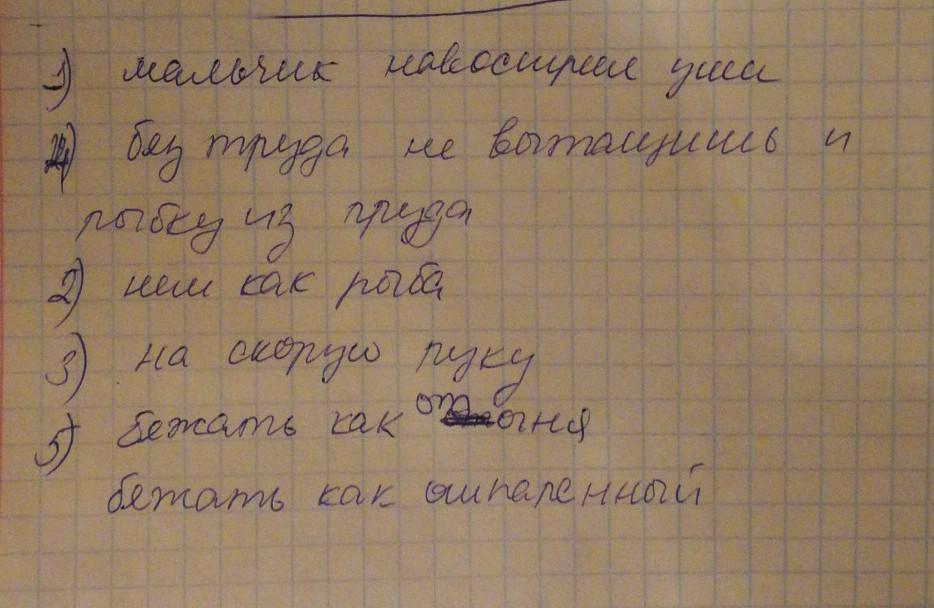 1) мальчик навострил уши
4) без труда не вытащишь и
рыбку из пруда
2) нем как рыба
3) на скорую руку
5) бежать как от огня
бежать как ошпаренный